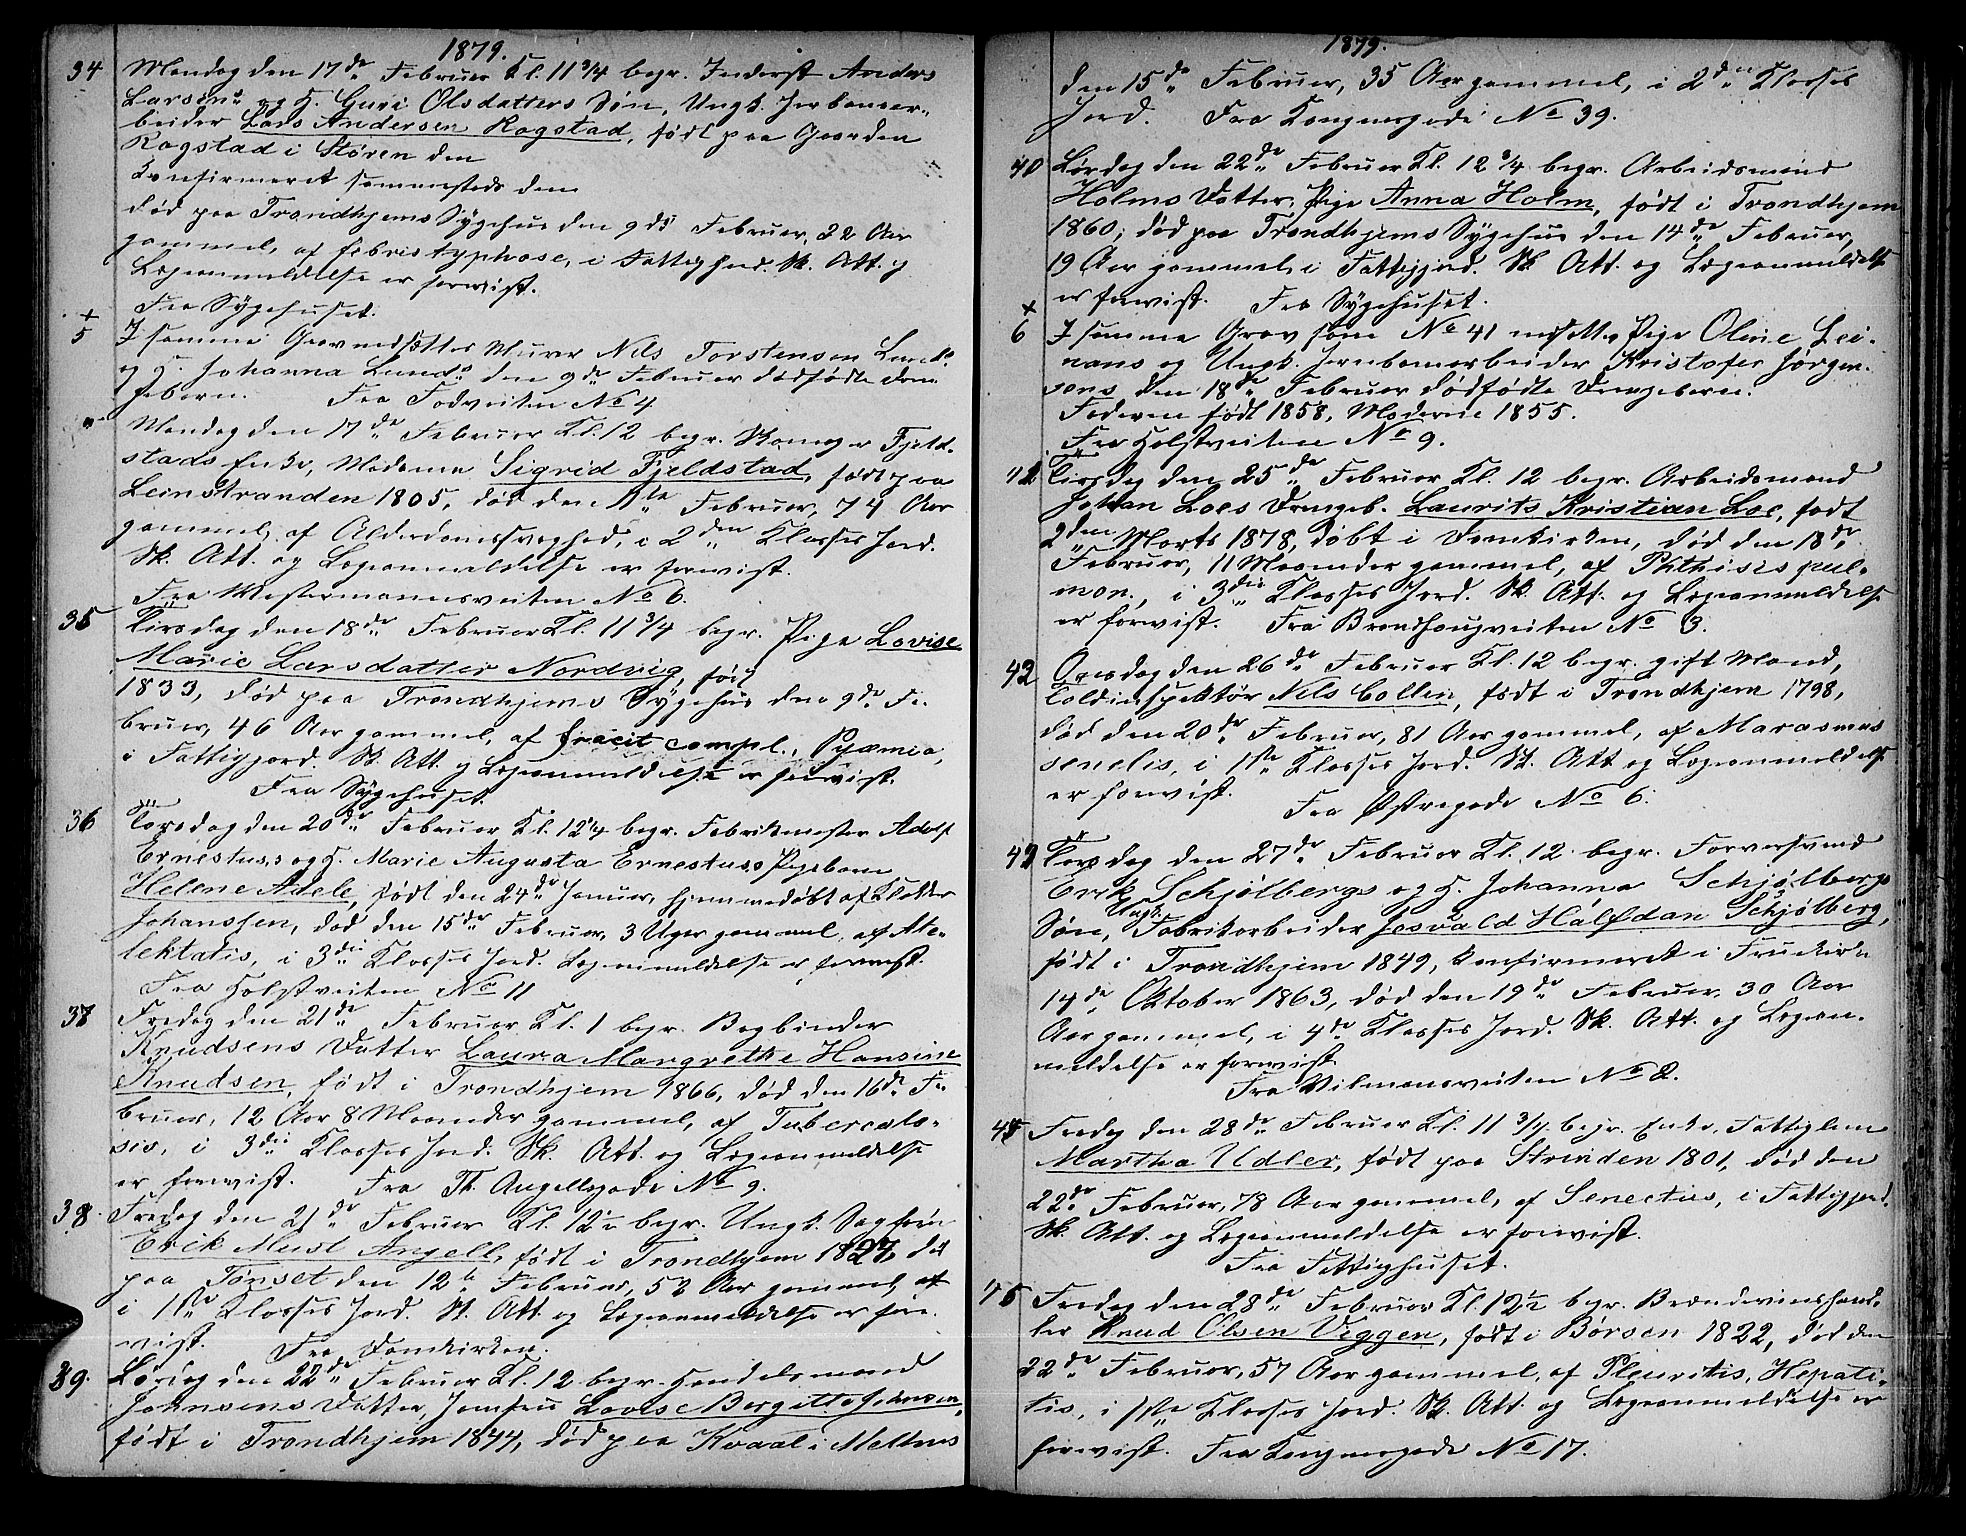 1879.
34 Mandag den 17de Februar Kl. 11 3/4 begr. Inderst Anders
Larsens og H. Guri Olsdatters Søn, Ungk. Jernbanear-
beider Lars Andersen Rogstad, født paa Gaarden
Rogstad i Støren den
Konfirmeret sammesteds den
død paa Trondhjems Sygehus den 9de Februar, 22 Aar
gammel, af febris typhose, i Fattigjord. Sk. Att. og
Lægeanmeldelse er forevist.
Fra Sygehuset.
+
5 I samme Grav nedsattes Murer Nils Torstensen Lunds
og H. Johanna Lunds den 9de Februar dødfødte Dren-
gebarn. Fra Fodveiten No 4
" Mandag den 17de Februar Kl. 12 begr. Skomager Fjeld-
stads Enke, Madame Sigrid Fjeldstad, født paa
Leinstranden 1805, død den 11te Februar, 74 Aar
gammel, af Alderdomssvaghed, i 2den Klasses Jord.
Sk. Att. og Lægeanmeldelse er forevist.
Fra Westermannsveiten No 6.
35 Tirsdag den 18de Februar Kl. 11 3/4 begr. Pige Lovise
Marie Larsdatter Nordvig, født
1833, død paa Trondhjems Sygehus den 9de Fe-
bruar, 46 Aar gammel, af fracit compl., Pyæmia,
i Fattigjord. Sk. Att. og Lægeanmeldelse er forevist.
Fra Sygehuset.
36 Torsdag den 20de Februar Kl. 12 1/4 begr. Fabrikmester Adolf
Ernestuss og H. Marie Augusta Ernestuss Pigebarn
Helene Adele, født den 24de Januar, hjemmedøbt af Klokker
Johanssen, død den 15de Februar, 3 Uger gammel, af Ate-
lektatis, i 3die Klasses Jord. Lægeanmeldelse er forevist.
Fra Holstveiten No 11
37 Fredag den 21de Februar Kl. 1 begr. Bogbinder
Knudsens Datter Laura Margrethe Hansine
Knudsen, født i Trondhjem 1866, død den 16de Fe-
bruar, 12 Aar 8 Maaneder gammel, af Tubercolo-
sis, i 3die Klasses Jord. Sk. Att. og Lægeanmeldelse
er forevist. Fra Th. Angellsgade No 9.
38 Fredag den 21de Februar Kl. 12 1/2 begr. Ungk. Sagfører
Erik Must Angell, født i Trondhjem 1827, død
paa Tønset den 12te Februar, 52 Aar gammel, af
i 1ste Klasses Jord. Sk. Att. og Lægeanmeldelse er fore-
vist. Fra Domkirken.
39. Lørdag den 22de Februar Kl. 12 begr. Handelsmand
Johnsens Datter, Jomfru Lovise Bergitte Johnsen,
født i Trondhjem 1844, død paa Kvaal i Melhus
1879.
den 15de Februar, 35 Aar gammel, i 2den Klasses
Jord. Fra Kongensgade No 39.
40 Lørdag den 22de Februar Kl. 12 3/4 begr. Arbeidsmand
Holms Datter, Pige Anna Holm, født i Trondhjem
1860, død paa Trondhjems Sygehus den 14de Februar,
19 Aar gammel, i Fattigjord. Sk. Att. og Lægeanmeldelse
er forevist. Fra Sygehuset.
+
6 I samme Grav som No 41 nedsattes Pige Oline Lei-
nans og Ungk. Jernbanearbeider Kristofer Jørgen-
sens den 18de Februar dødfødte Drengebarn.
Faderen født 1858, Moderen 1855.
Fra Holstveiten No 9.
41 Tirsdag den 25de Februar Kl. 12 begr. Arbeidsmand
Johan Loes Drengeb. Laurits Kristian Loe, født
2den Marts 1878, døbt i Domkirken, død den 18de
Februar, 11 Maaneder gammel, af Phthisis pul-
mon., i 3die Klasses Jord. Sk. Att. og Lægeanmeldelse
er forevist. Fra Brandhaugveiten No 3.
42 Onsdag den 26de Februar Kl. 12 begr. gift Mand,
Toldinspektør Nils Collin, født i Trondhjem 1798,
død den 20de Februar, 81 Aar gammel, af Marasmus
senelis, i 1ste Klasses Jord. Sk. Att. og Lægeanmeldelse
er forevist. Fra Østregade No 6.
43 Torsdag den 27de Februar Kl. 12 begr. Farversvend
Erik Schjølbergs og H. Johanna Schjølbergs
Søn, Ungk. Fabrikarbeider Jesvald Halfdan Schjølberg,
født i Trondhjem 1849, konfirmeret i Fruekirken
14de Oktober 1863, død den 19de Februar, 30 Aar
Aar gammel, i 4de Klasses Jord. Sk. Att. og Lægean-
meldelse er forevist
Fra Vilmansveiten No 2.
44 Fredag den 28de Februar Kl. 11 3/4 begr. Enke, Fattiglem
Martha Udler, født paa Strinden 1801, død den
22de Februar, 78 Aar gammel, af Senectus, i Fattigjord.
Sk. Att. og Lægeanmeldelse er forevist.
Fra Fattighuset.
45 Fredag den 28de Februar Kl. 12 1/2 begr. Brændevinshand-
ler Knud Olsen Viggen, født i Børsen 1822, død den
22de Februar, 57 Aar gammel, af Pleuritis, Hepati-
tis, i 1ste Klasses Jord. Sk. Att. og Lægeanmeldelse er
forevist. Fra Kongensgade No 17.